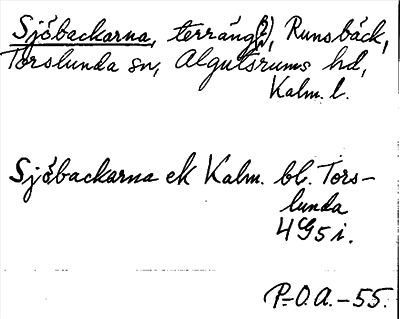 Sjöbackarna, terräng, Runsbäck,
Torslunda sn, Algutsrums hd,
Kalm. l.
Sjöbackarna ek Kalm. bl. Tors-
lunda
4G5i.
P.-O.A.-55.